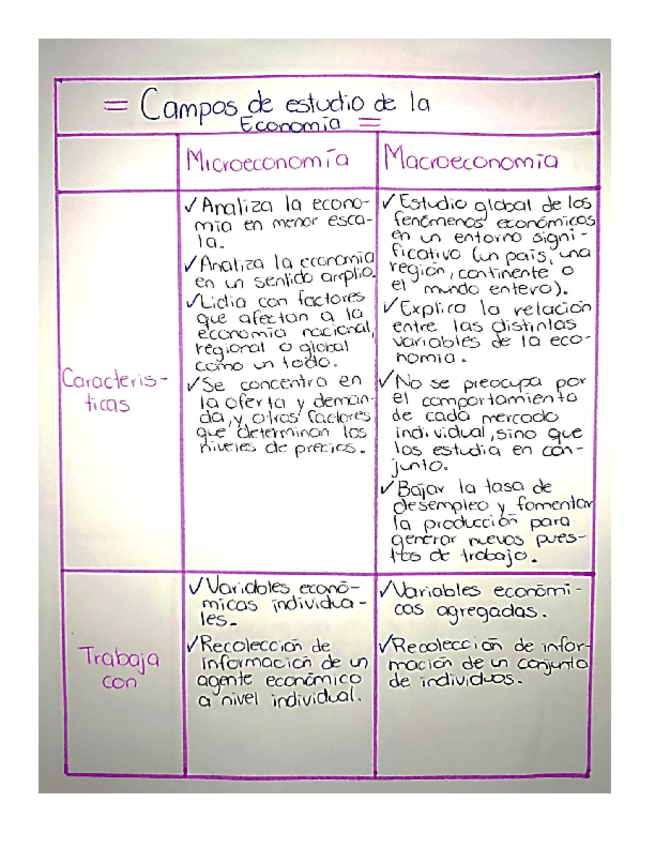 = Campos de estudio de la
Economía =
Microeconomía
Macroeconomía
Caracterís-
ticas
✓Analiza la econo-
mía en menor esca-
la.
✓Analiza la economía
en un sentido amplio.
✓Lidia con factores
que afectan a la
economía nacional,
regional o global
como un todo.
✓Se concentra en
la oferta y deman-
da, y otros factores
que determinan los
niveles de precios.
✓Estudio global de los
fenómenos económicos
en un entorno signi-
ficativo (un país, una
región, continente o
el mundo entero).
✓Explica la relación
entre las distintas
variables de la eco-
nomía.
✓No se preocupa por
el comportamiento
de cada mercado
individual, sino que
los estudia en con-
junto.
✓Bajar la tasa de
desempleo y fomentar
la producción para
generar nuevos pues-
tos de trabajo.
Trabaja
con
✓Variables econó-
micas individua-
les.
✓Recolección de
información de un
agente económico
a nivel individual.
✓Variables económi-
cas agregadas.
✓Recolección de infor-
mación de un conjunto
de individuos.